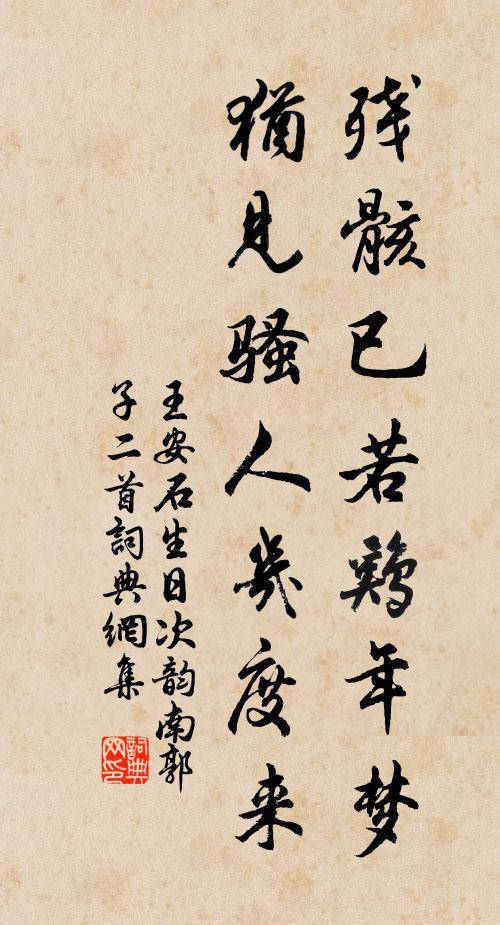 残骸已若鷄年梦
猶见骚人幾度来
王安石生日次韵南郭
子二首詞典網集
詞典
网印